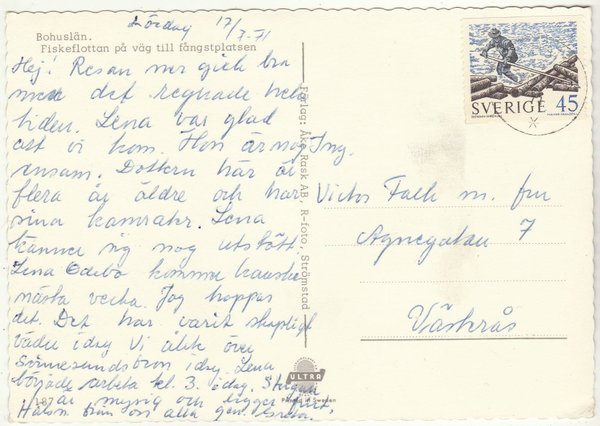 Lördag 17/7-71
Bohuslän.
Fiskeflottan på väg till fångstplatsen
Hej! Resan ner gick bra
men det regnade hela
tiden. Lena var glad
att vi kom. Hon är nog
ensam. Dottern här är
flera år äldre och har
sina kamrater. Lena
känner sig nog utstött.
Lena Odebo kommer kanske
nästa vecka. Jag hoppas
det. Det har varit skapligt
väder idag. Vi åkte över
Svinesundsbron idag. Lena
började arbeta kl. 3. idag. Stugan
är mysig och ligger fint.
Hälsn från oss alla gm Greta.
187
Förlag: Åke Rask AB. R-foto, Strömstad
ULTRA
Printed in Sweden
SVERIGE 45
Ing.
Victor Falk m. fru
Agnegatan 7
Västerås